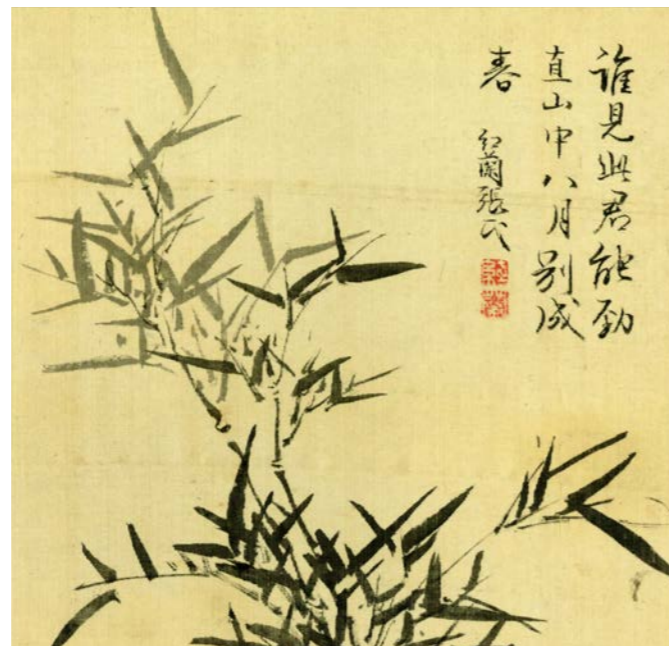 誰見此君能勁
直山中八月別成
春
紅蘭張氏